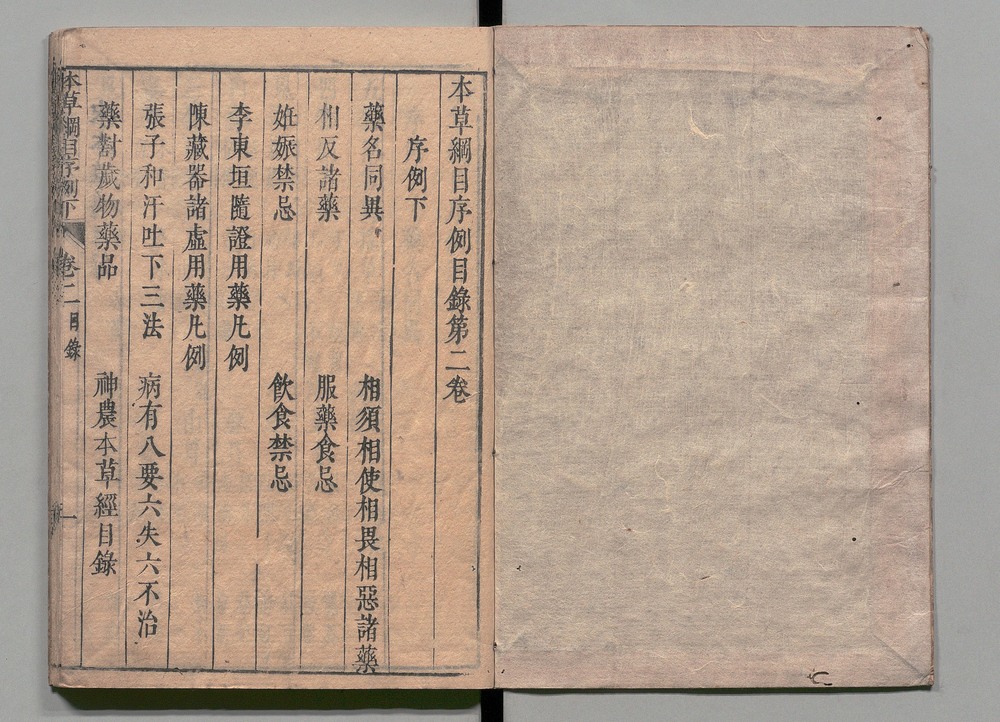 本草綱目序例目錄第二卷
序例下
藥名同異　相須相使相畏相惡諸藥
相反諸藥　服藥食忌
妊娠禁忌　飲食禁忌
李東垣隨證用藥凡例
陳藏器諸虛用藥凡例
張子和汗吐下三法　病有八要六失六不治
藥對歲物藥品　神農本草經目錄
本草綱目序例下　卷二目錄　一